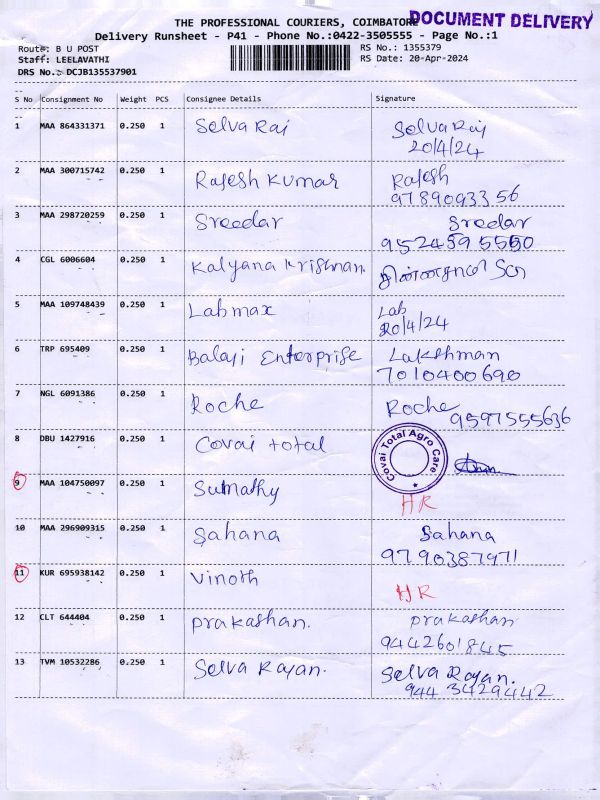 THE PROFESSIONAL COURIERS, COIMBATORE
DOCUMENT DELIVERY
Delivery Runsheet - P41 - Phone No.:0422-3505555 - Page No.:1
Route: B U POST RS No.: 1355379
Staff: LEELAVATHI RS Date: 20-Apr-2024
DRS No.: DCJB135537901
S No Consignment No Weight PCS Consignee Details Signature
1 MAA 864331371 0.250 1 Selva Raj Selva Raj
20/4/24
2 MAA 300715742 0.250 1 Rajesh Kumar Rajesh
9789093356
3 MAA 298720259 0.250 1 Sreedar Sreedar
9524595550
4 CGL 6006604 0.250 1 Kalyana Krishnan.
5 MAA 109748439 0.250 1 Labmax Lab
20/4/24
6 TRP 695409 0.250 1 Balaji Enterprise Lakshman
7010400690
7 NGL 6091386 0.250 1 Roche Roche 9597555636
8 DBU 1427916 0.250 1 Covai total Covai Total Agro Care
9 MAA 104750097 0.250 1 Sumathy HR
10 MAA 296909315 0.250 1 Sahana Sahana
9790387971
11 KUR 695938142 0.250 1 Vinoth HR
12 CLT 644404 0.250 1 prakashan. prakashan
9442601845
13 TVM 10532286 0.250 1 Selva Rajan. Selva Rajan.
9443429442